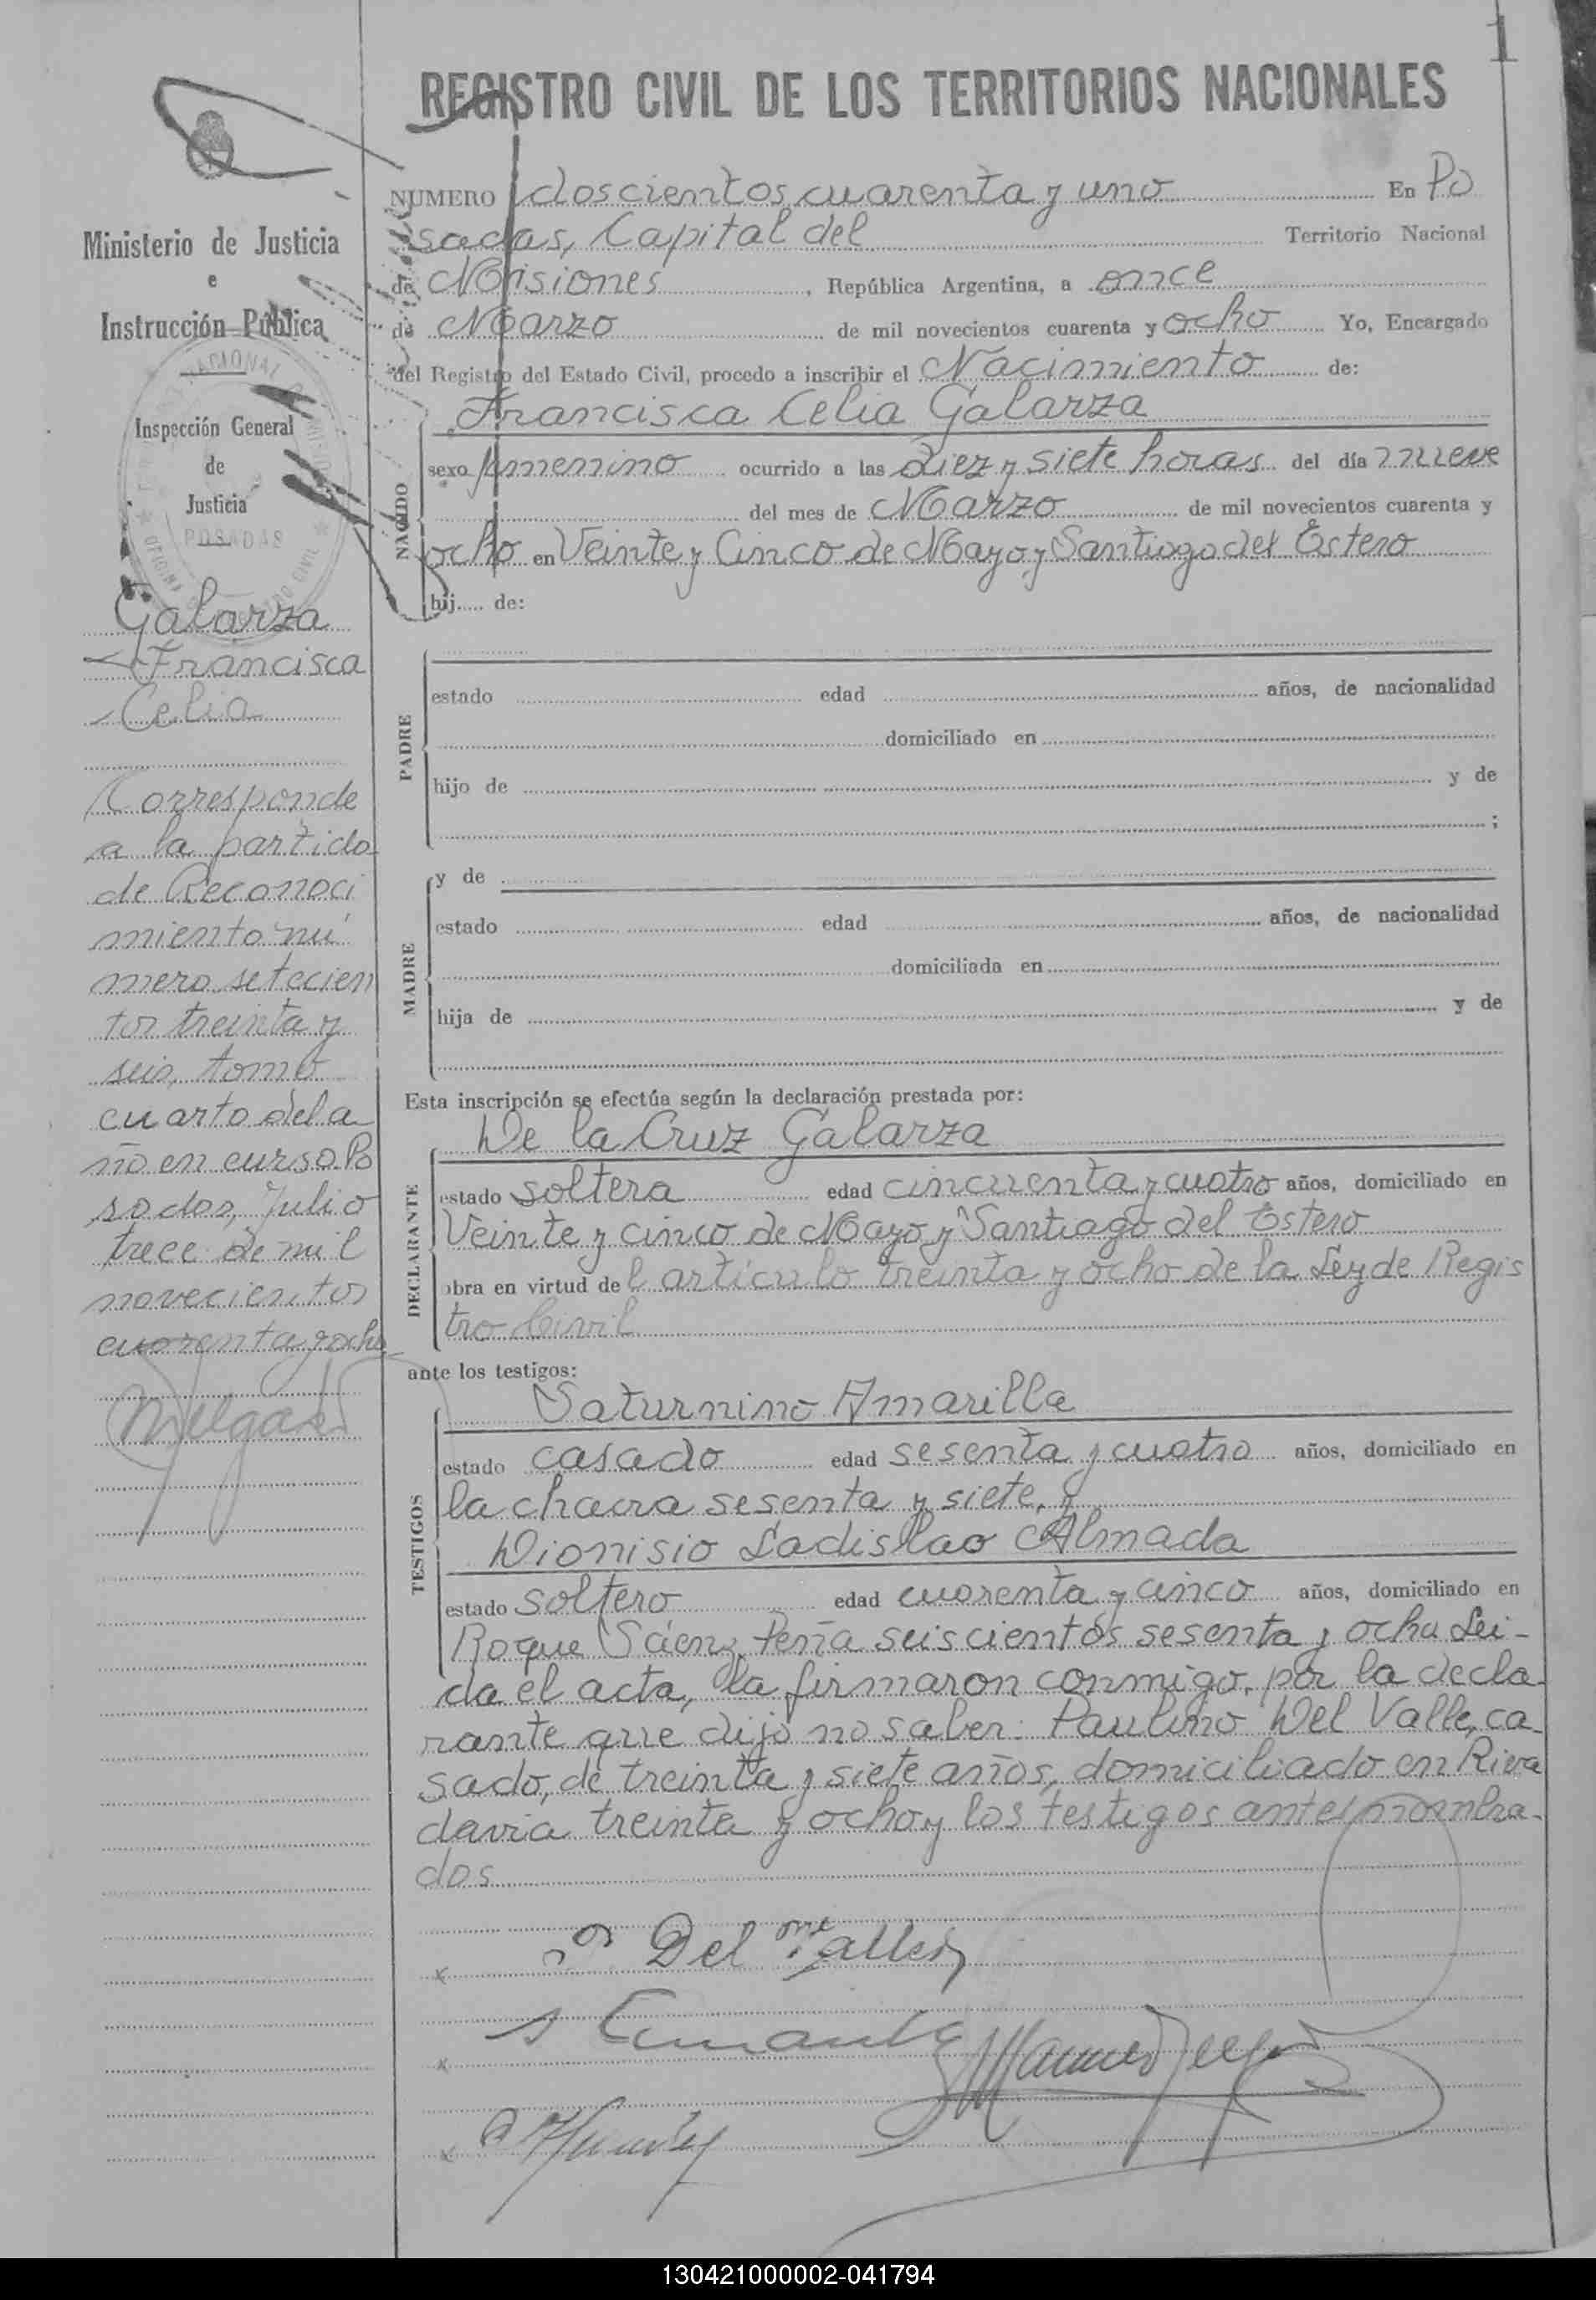 1
REGISTRO CIVIL DE LOS TERRITORIOS NACIONALES
Ministerio de Justicia
e
Instrucción Pública
Inspección General
de
Justicia
POSADAS
Galarza
Francisca
Celia
Corresponde
a la partida
de Reconoci
miento nú
mero setecien
tos treinta y
seis, tomo
cuarto del a
ño en curso. Po
sadas, Julio
trece de mil
novecientos
cuarenta y ocho
NUMERO doscientos cuarenta y uno En Po
sadas, Capital del Territorio Nacional
de Misiones, República Argentina, a once
de Marzo de mil novecientos cuarenta y ocho Yo, Encargado
del Registro del Estado Civil, procedo a inscribir el Nacimiento de:
Francisca Celia Galarza
NACIDO
sexo femenino ocurrido a las diez y siete horas del día nueve
del mes de Marzo de mil novecientos cuarenta y
ocho en Veinte y Cinco de Mayo y Santiago del Estero
hij..... de:
PADRE
estado edad años, de nacionalidad
domiciliado en
hijo de y de
;
MADRE
y de
estado edad años, de nacionalidad
domiciliada en
hija de y de
Esta inscripción se efectúa según la declaración prestada por:
De la Cruz Galarza
DECLARANTE
estado soltera edad cincuenta y cuatro años, domiciliado en
Veinte y cinco de Mayo y Santiago del Estero
obra en virtud del artículo treinta y ocho de la Ley de Regis
tro Civil
ante los testigos:
Saturnino Amarilla
TESTIGOS
estado casado edad sesenta y cuatro años, domiciliado en
la chacra sesenta y siete, y
Dionisio Ladislao Almada
estado soltero edad cuarenta y cinco años, domiciliado en
Roque Sáenz Peña seiscientos sesenta y ocho Lei-
da el acta, la firmaron conmigo, por la decla-
rante que dijo no saber: Paulino Del Valle, ca-
sado, de treinta y siete años, domiciliado en Riva
davia treinta y ocho y los testigos antes nombra-
dos
Del Valle
130421000002-041794